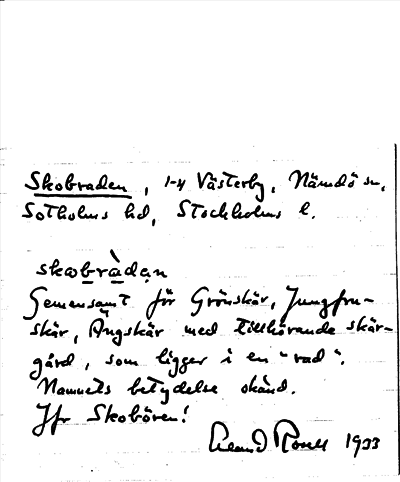 Skobraden, 1-4 Västerby, Nämdö sn,
Sotholms hd, Stockholms l.
skobràdęn
Gemensamt för Grönskär, Jungfru-
skär, Ängskär med tillhörande skär-
gård, som ligger i en "rad".
Namnets betydelse okänd.
Jfr Skobören!
1933